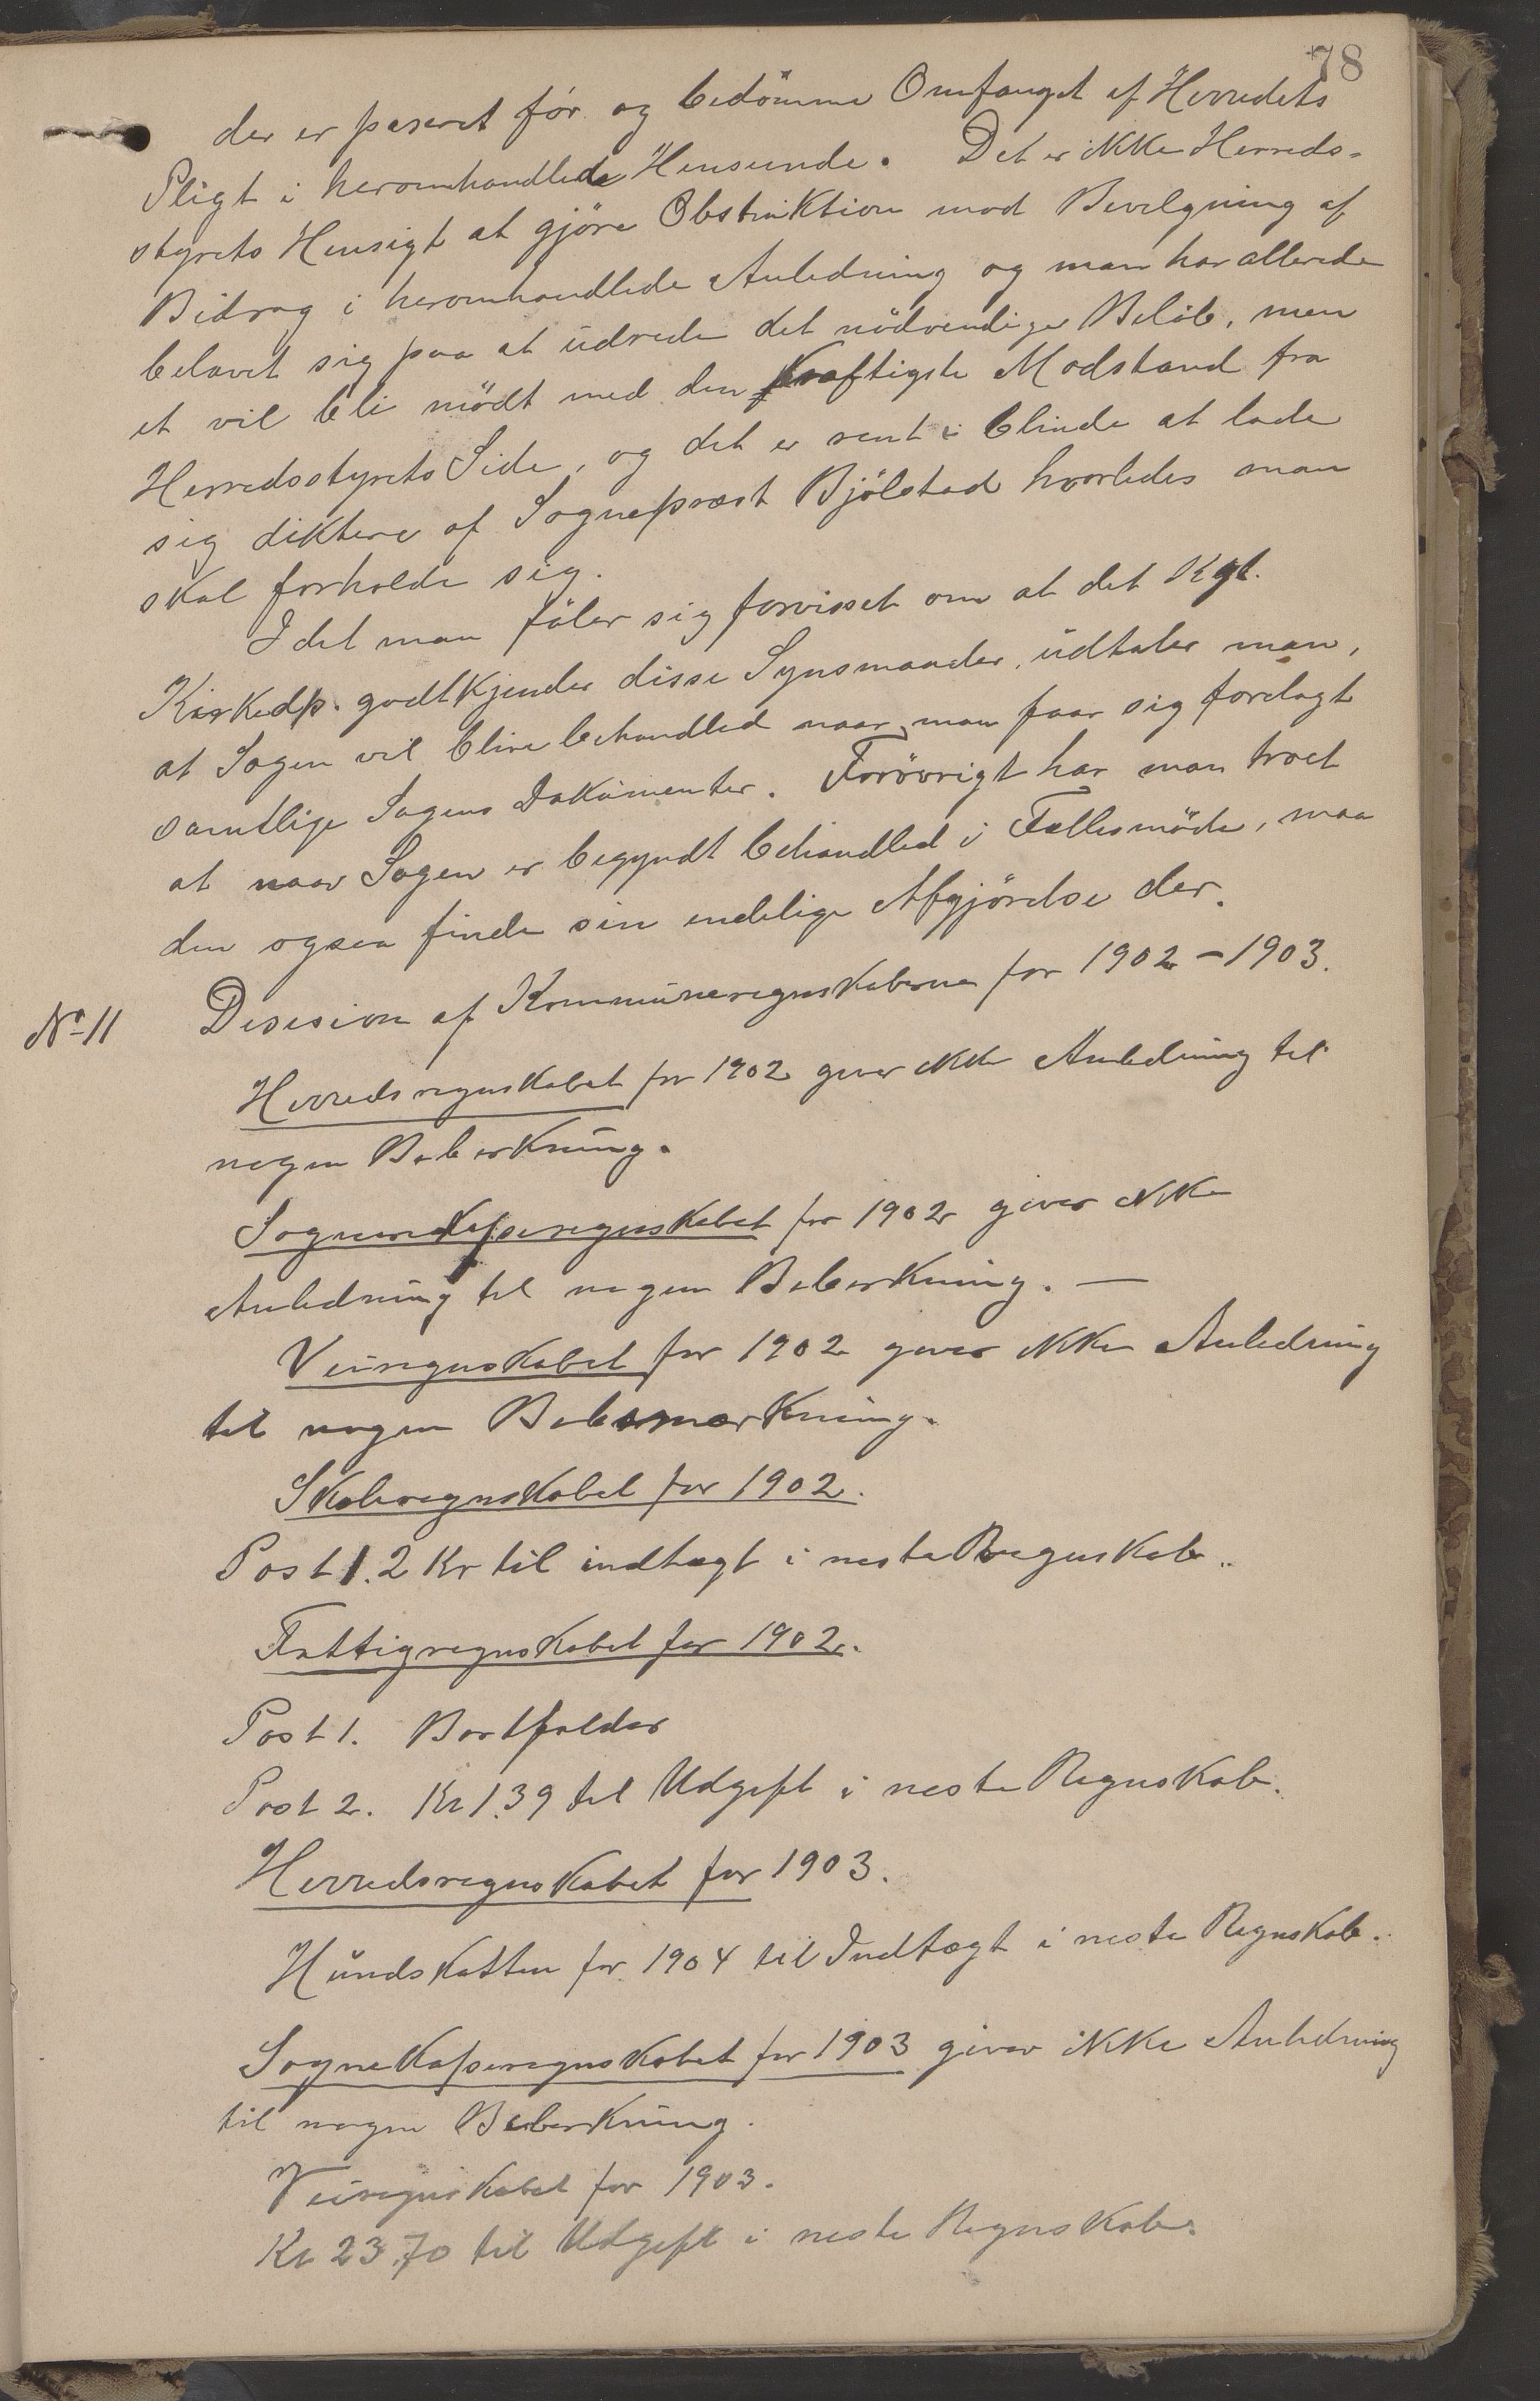 78
der er paseret för og bedömme Omfanget af Herredets
Pligt i heromhandlede Henseende. Det er ikke Herreds-
styrets Hensigt at gjöre Obstruktion mod Bevilgning af
Bidrag i heromhandlede Anledning og man har allerede
belavet sig paa at udrede det nödvendige Belöb, men
et vil bli mödt med den kraftigste Modstand fra
Herredsstyrets Side, og det er rent i blinde at lade
sig diktere af Sogneprest Bjölstad hvorledes man
skal forholde sig.
Idet man föler sig forvisset om at det Kgl.
Kirkedp. godtkjender disse Synsmaader, udtaler man,
at Sagen vil blive behandled naar man faar sig forelagt
samtlige Sagens Dokumenter. Forövrigt har man troet
at naar Sagen er begyndt behandled i Fellesmöde, maa
den ogsaa finde sin endelige Afgjörelse der.
No 11 Desision af Kommuneregnskaberne for 1902 - 1903.
Herredsregnskabet for 1902 giver ikke Anledning til
nogen Beberkning.
for 1902 giver ikke
Anledning til nogen Beberkning. —
Veiregnskabet for 1902 giver ikke Anledning
til nogen
Skoleregnskabet for 1902.
Post 1. 2 Kr til indtægt i neste Regnskab.
Fattigregnskabet for 1902.
Post 1. Bortfalder
Post 2. Kr 1.39 til Udgift i neste Regnskab.
Herredsregnskabet for 1903.
Hundskatten for 1904 til Indtægt i neste Regnskab.
Sognekasseregnskabet for 1903 giver ikke Anledning
til nogen Beberkning.
Veiregnskabet for 1903.
Kr 23.70 til Udgift i neste Regnskab.